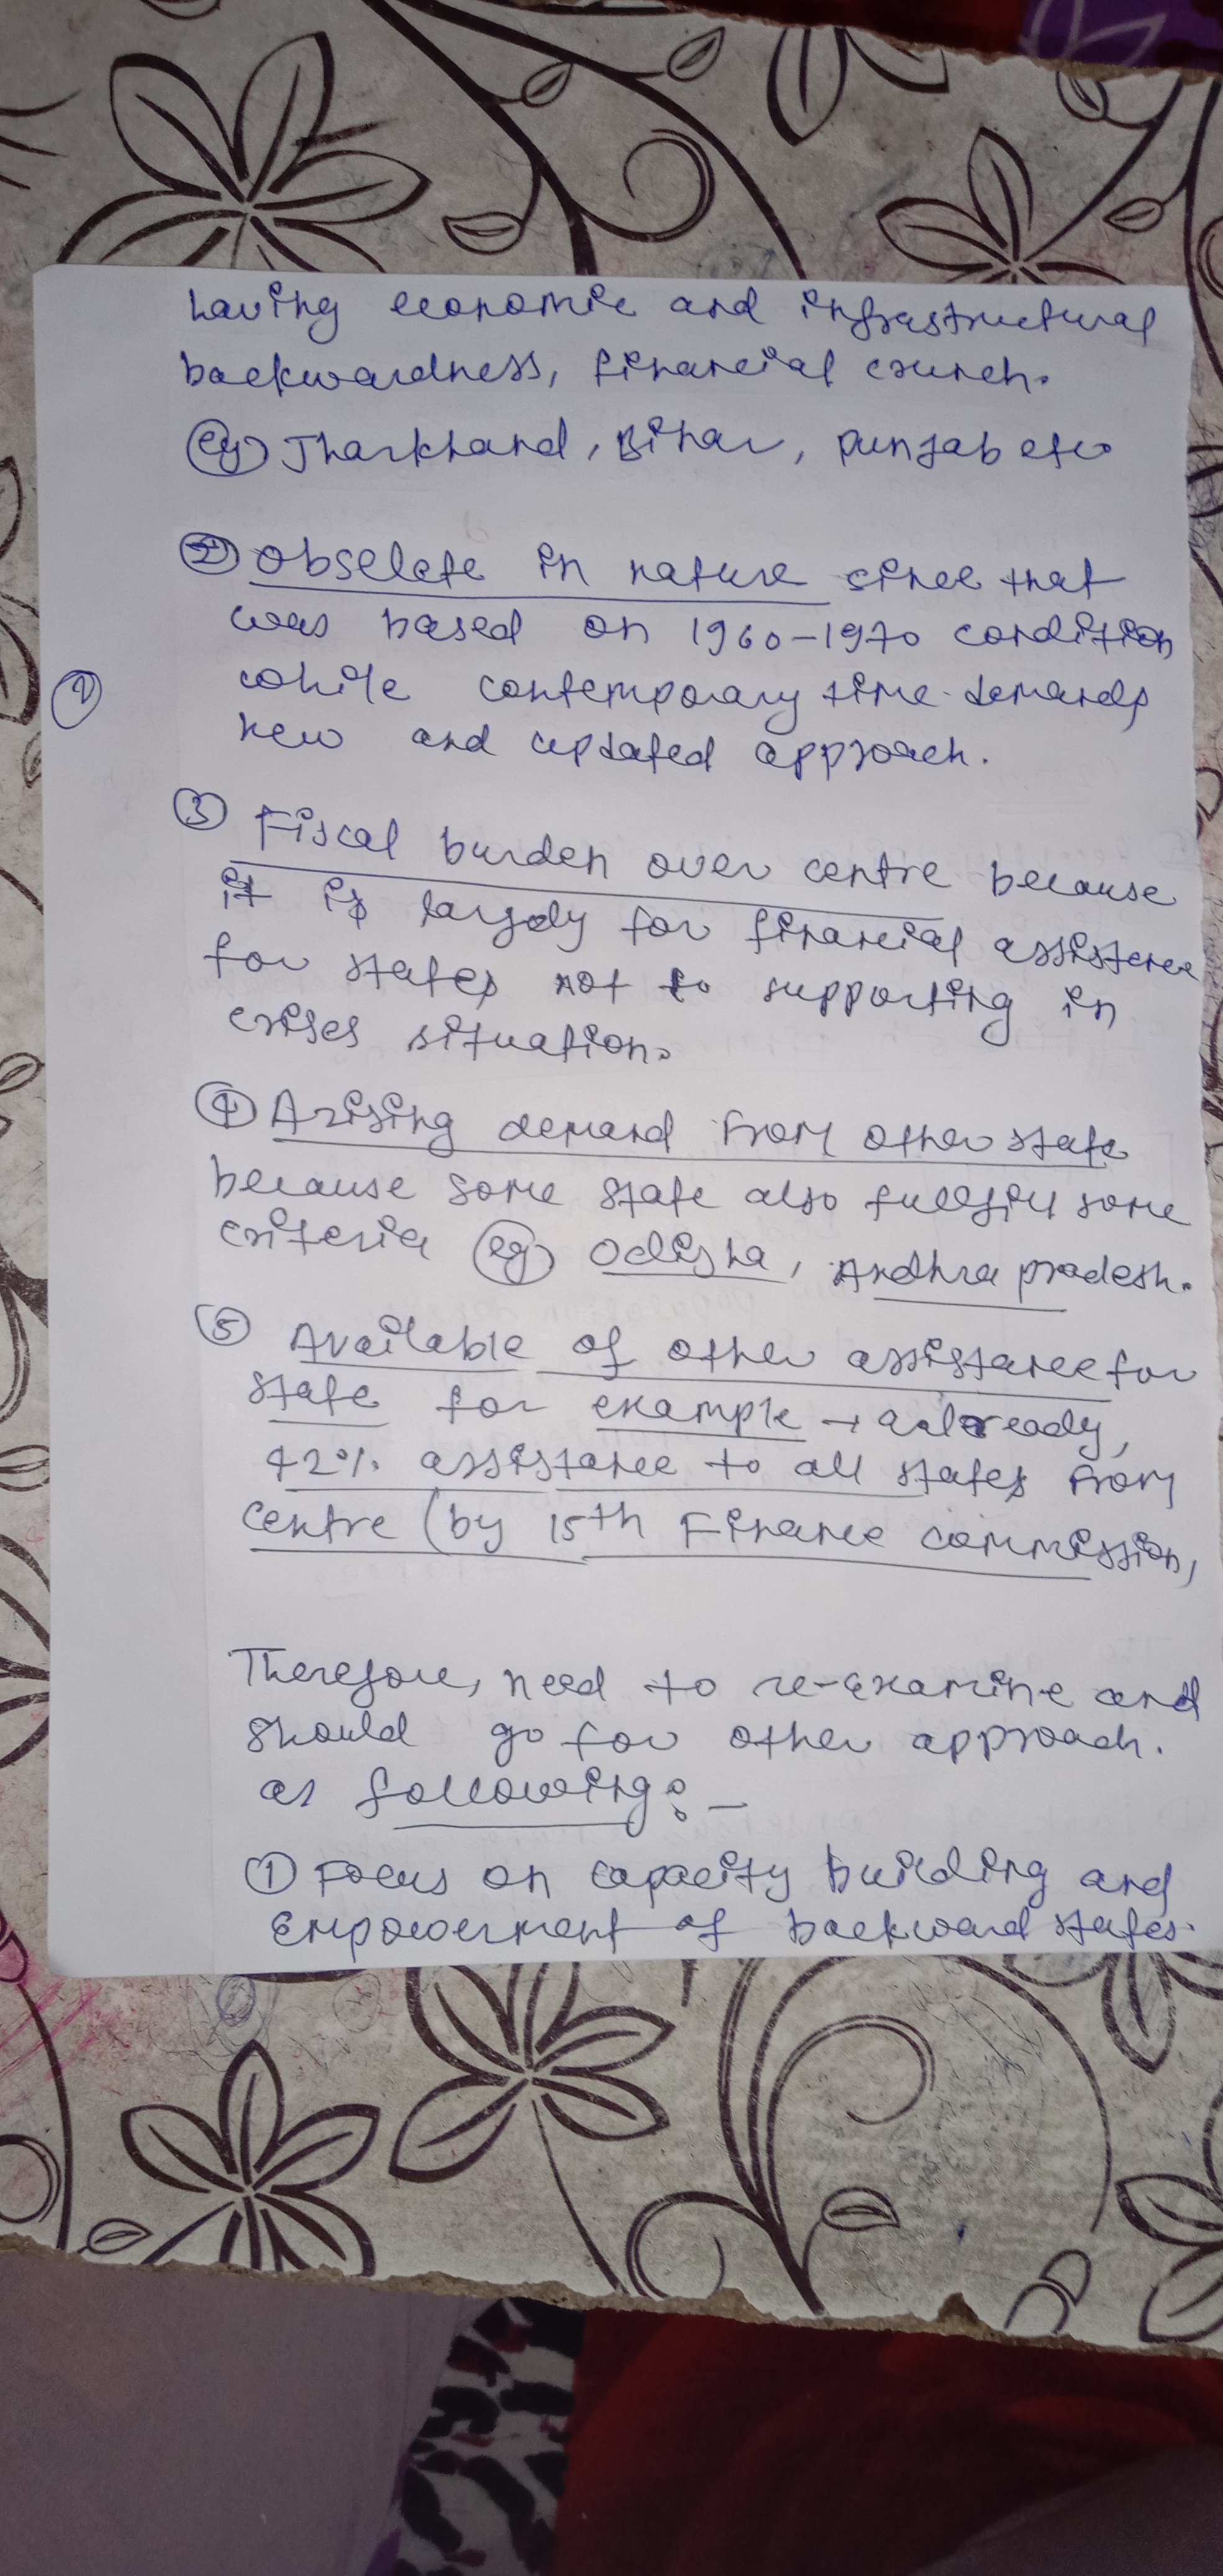 having economic and infrastructural
backwardness, financial crunch.
eg Jharkhand, Bihar, Punjab etc
② Obselete in nature since that
was based on 1960-1970 condition
while contemporary time demands
new and updated approach.
2
③ Fiscal burden over centre because
it is largely for financial assistance
for states not to supporting in
crises situation.
④ Arising demand from other state
because some state also fullfill some
criteria eg Odisha, Andhra pradesh.
⑤ Available of other assistance for
state for example → already,
42% assistance to all states from
centre (by 15th Finance commission,
Therefore, need to re-examine and
should go for other approach.
as following:-
① Focus on capacity building and
Empowerment of backward states.